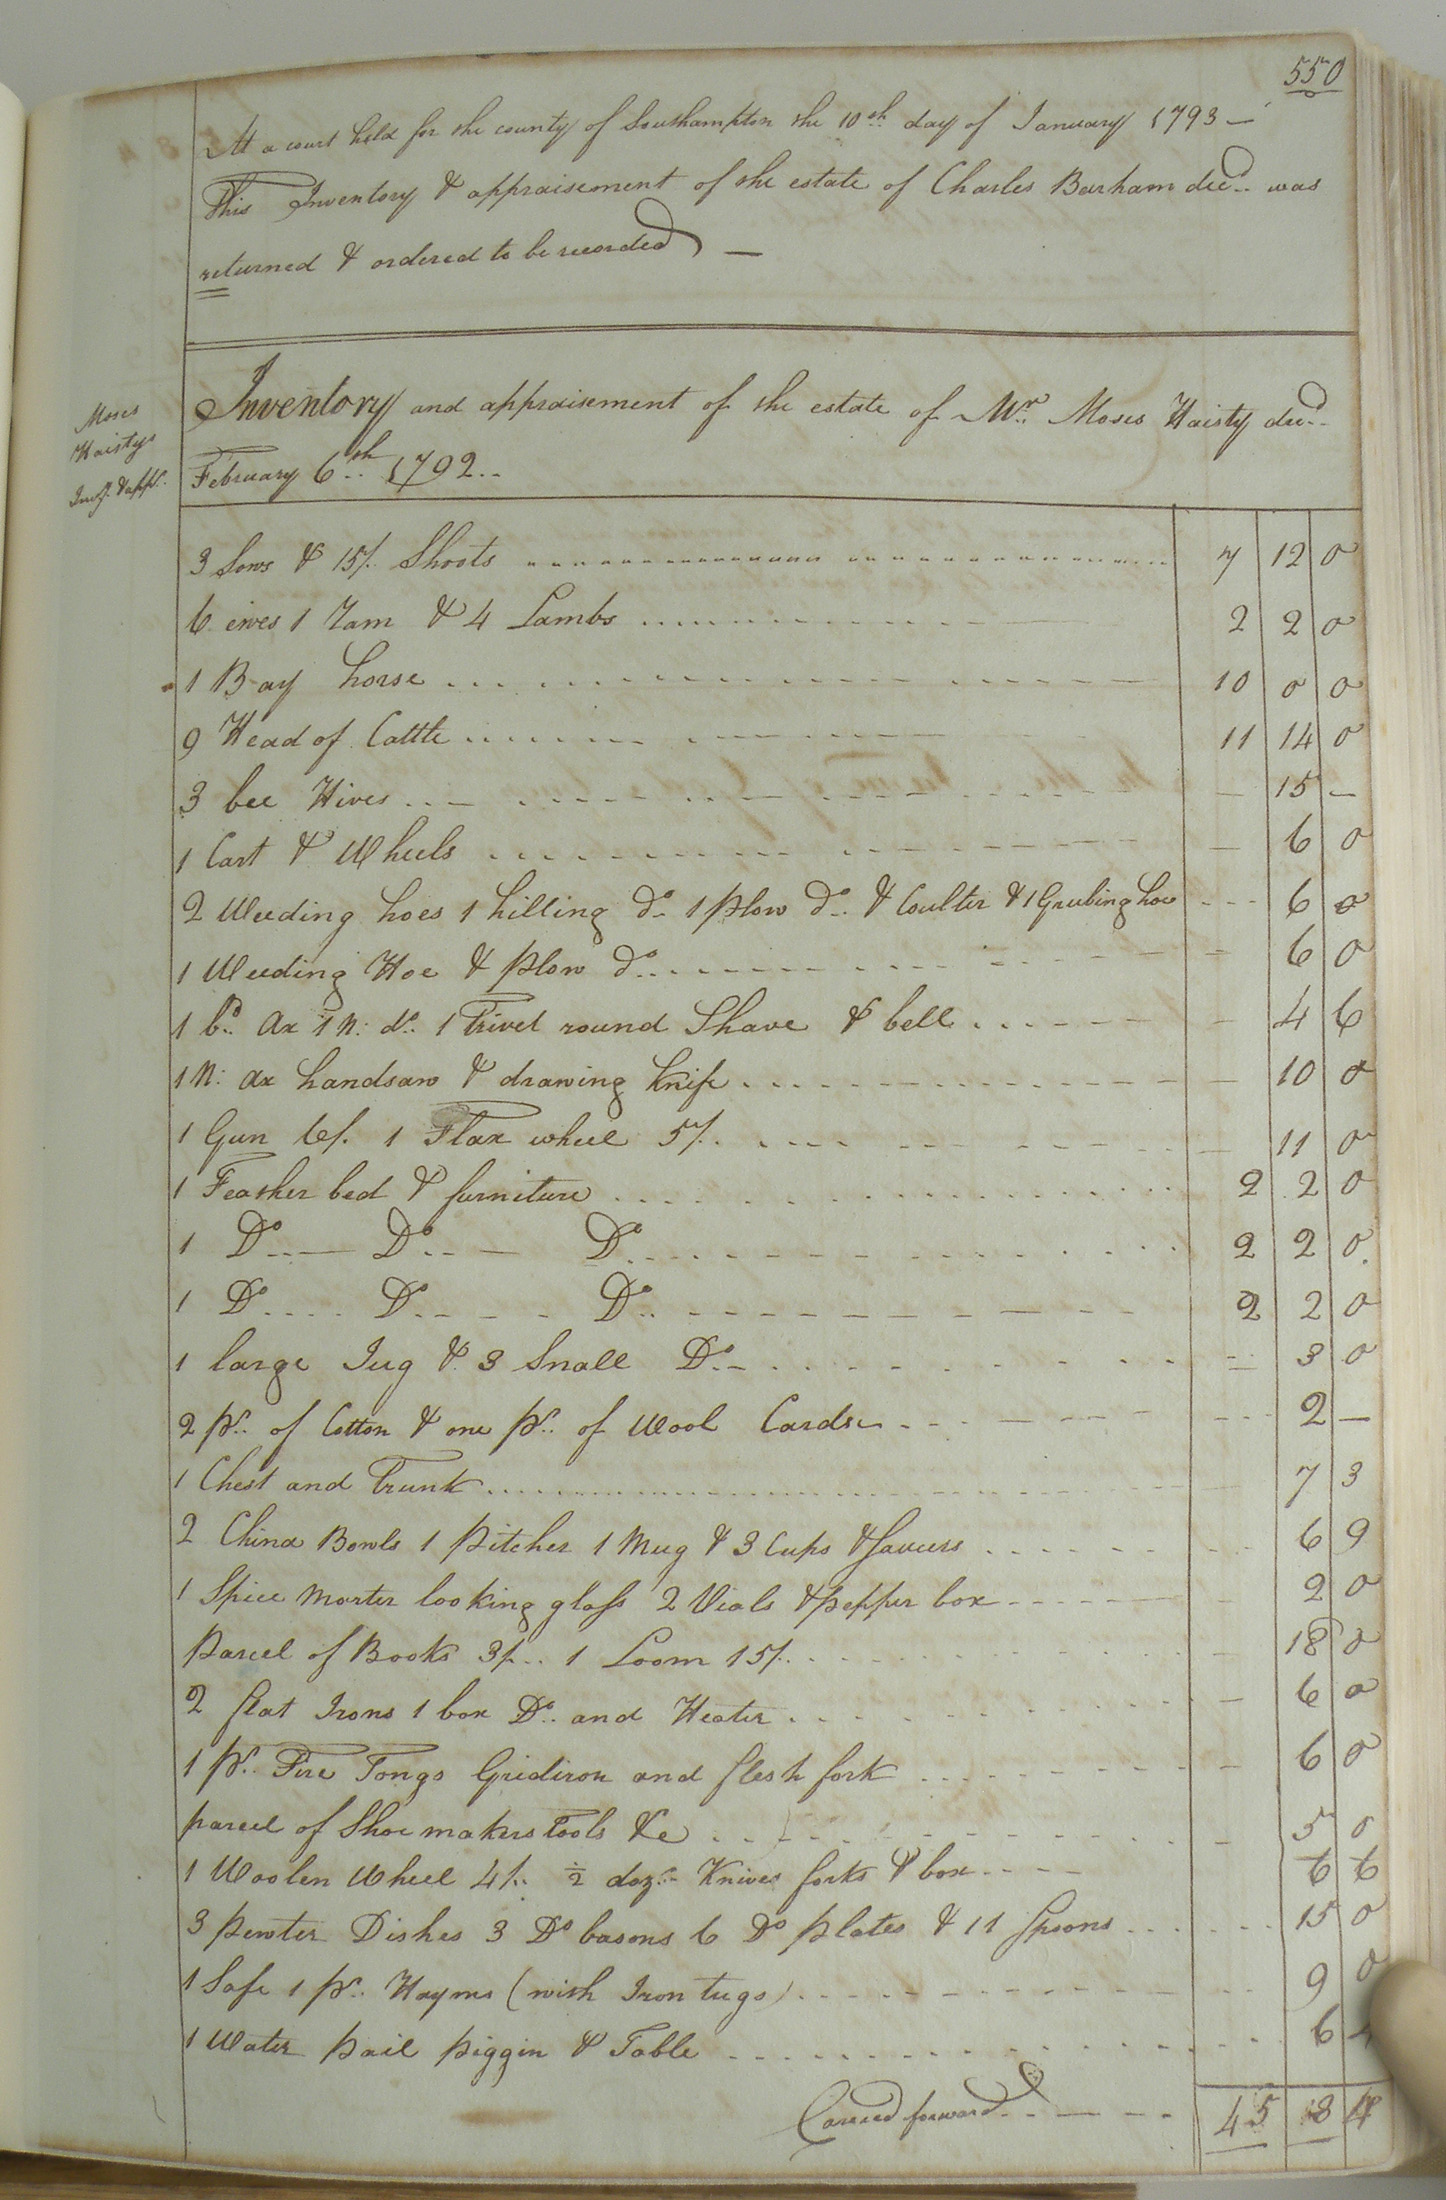 550
At a court held for the county of Southampton the 10th day of January 1793 —
This Inventory & appraisement of the estate of Charles Barham decd. was
returned & ordered to be recorded —
Moses
Haistys
Invy. & appt.
Inventory and appraisement of the estate of Mr. Moses Haisty decd.
February 6th 1792
3 Sows & 15/. Shoots 7 12 0
6 ewes 1 Ram & 4 Lambs 2 2 0
1 Bay horse 10 0 0
9 Head of Cattle 11 14 0
3 bee Hives — 15 —
1 Cart & Wheels — 6 0
2 Weeding hoes 1 hilling do. 1 plow do. & Coulter & 1 Grubing hoe 6 0
1 Weeding Hoe & plow do. — 6 0
1 bd. ax 1 N: do. 1 Trivet round Shave & bell — 4 6
1 N: ax handsaw & drawing knife — 10 0
1 Gun 6/. 1 Flax wheel 5/. — 11 0
1 Feather bed & furniture 2 2 0
1 Do. — Do. — Do. 2 2 0
1 Do. Do. Do. 2 2 0
1 large Jug & 3 Small Do. — 3 0
2 pr. of Cotton & one pr. of Wool Cards 2 —
1 Chest and Trunk 7 3
2 China Bowls 1 pitcher 1 Mug & 3 Cups & Saucers 6 9
1 Spice morter looking glass 2 Vials & pepper box 2 0
Parcel of Books 3/. 1 Loom 15/. 18 0
2 flat Irons 1 box Do. and Heater — 6 0
1 pr. Fire Tongs Gridiron and flesh fork — 6 0
parcel of Shoe makers Tools &c — 5 0
1 Woolen Wheel 4/. ½ doz. Knives forks & box 6 6
3 pewter Dishes 3 Do basons 6 Do plates & 11 Spoons 15 0
1 Safe 1 pr. Hayms (with Iron tugs) 9 0
1 Water pail piggin & Table 6
Carried forward 45 8 4